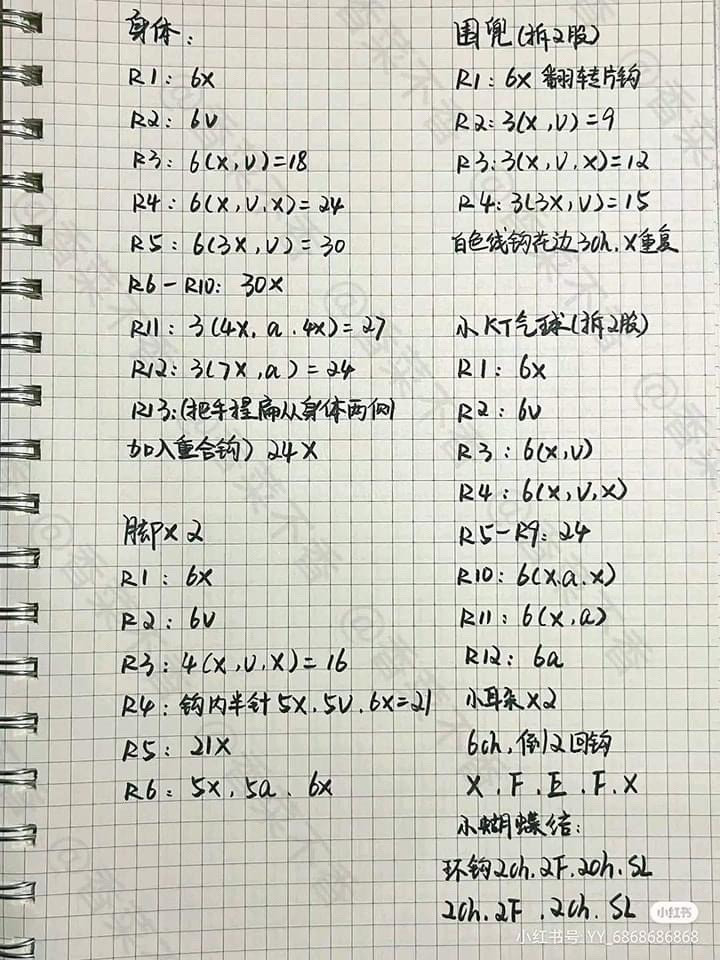 身体:
R1: 6x
R2: 6V
R3: 6(x,V)=18
R4: 6(x,V,x)=24
R5: 6(3x,V)=30
R6-R10: 30x
R11: 3(4x.a.4x)=27
R12: 3(7x,a)=24
R13:(把手捏扁从身体两侧
加入重合钩) 24x
脚x2
R1: 6x
R2: 6V
R3: 4(x,V,x)=16
R4: 钩内半针5x.5V.6x=21
R5: 21x
R6: 5x,5a.6x
围兜(拆2股)
R1: 6x 翻转片钩
R2: 3(x,V)=9
R3: 3(x,V,x)=12
R4: 3(3x,V)=15
白色线钩花边3ch.x重复
小KT气球(拆2股)
R1: 6x
R2: 6V
R3: 6(x,V)
R4: 6(x,V,x)
R5-R9: 24
R10: 6(x.a.x)
R11: 6(x,a)
R12: 6a
小耳朵x2
6ch,倒2回钩
X.F.E.F.X
小蝴蝶结:
环钩2ch.2F.2ch.SL
2ch.2F.2ch.SL
小红书
小红书号 YY_6868686868
@香菜不香